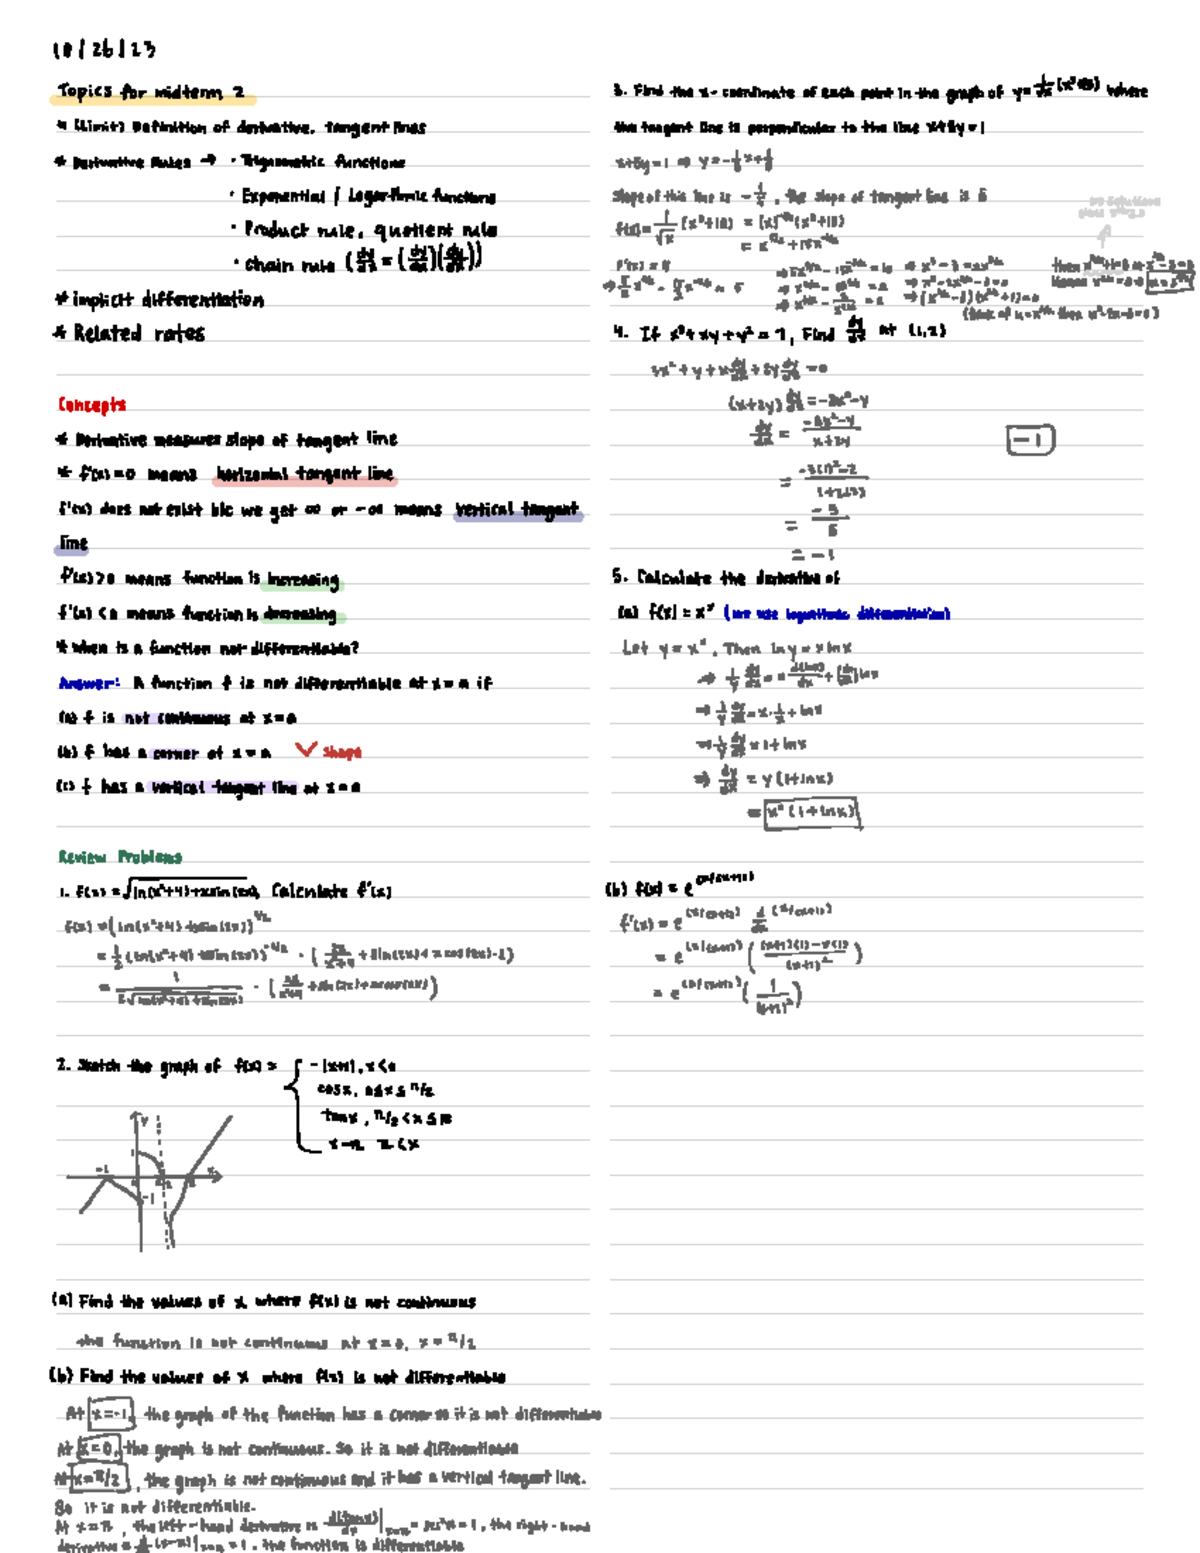 10/26/23
Topics for midterm 2
* (Limit) Definition of derivative, tangent lines
* Derivative Rules → · Trigonometric functions
· Exponential / Logarithmic functions
· Product rule, quotient rule
· Chain rule (dy/dx = (dy/du)(du/dx))
* implicit differentiation
* Related rates
Concepts
* Derivative measures slope of tangent line
* f'(x)=0 means horizontal tangent line
f'(x) does not exist b/c we get ∞ or -∞ means vertical tangent
line
f'(x)>0 means function is increasing
f'(x)<0 means function is decreasing
* When is a function not differentiable?
Answer: A function f is not differentiable at x=a if
(a) f is not continuous at x=a
(b) f has a corner at x=a ∨ shape
(c) f has a vertical tangent line at x=a
Review Problems
1. f(x) = √ln(x²+4)+xsin(2x), Calculate f'(x)
2. Sketch the graph of f(x) = { -|x+1|, x<0
cosx, 0≤x≤π/2
tanx, π/2<x≤π
x-π, π<x
y
-1
1
x
-1
(a) Find the values of x where f(x) is not continuous
the function is not continuous at x=0, x=π/2
(b) Find the values of x where f(x) is not differentiable
At x=-1, the graph of the function has a corner so it is not differentiable
At x=0, the graph is not continuous. So it is not differentiable
At x=π/2, the graph is not continuous and it has a vertical tangent line.
So it is not differentiable.
At x=π, the left-hand derivative is the right-hand
derivative = 1, the function is differentiable
3. Find the x-coordinate of each point in the graph of where
the tangent line is perpendicular to the line x+5y=1
x+5y=1 ⇒ y=-1/5x+1/5
Slope of this line is -1/5, the slope of tangent line is 5
4. If x³+xy+y²=7, Find dy/dx at (1,2)
3x²+y+x dy/dx+2y dy/dx=0
(x+2y) dy/dx=-3x²-y
dy/dx = (-3x²-y)/(x+2y)
-1
= (-3(1)²-2)/(1+2(2))
= -5/5
= -1
5. Calculate the derivative of
(a) f(x)=xˣ (we use logarithmic differentiation)
Let y=xˣ. Then lny=xlnx
⇒ 1/y dy/dx = x·1/x+lnx
⇒ 1/y dy/dx = 1+lnx
⇒ dy/dx = y(1+lnx)
= xˣ(1+lnx)
(b) f(x)=e^(x/(x+1))
f'(x)=e^(x/(x+1)) d/dx (x/(x+1))
= e^(x/(x+1)) (((x+1)(1)-x(1))/(x+1)²)
= e^(x/(x+1)) (1/(x+1)²)